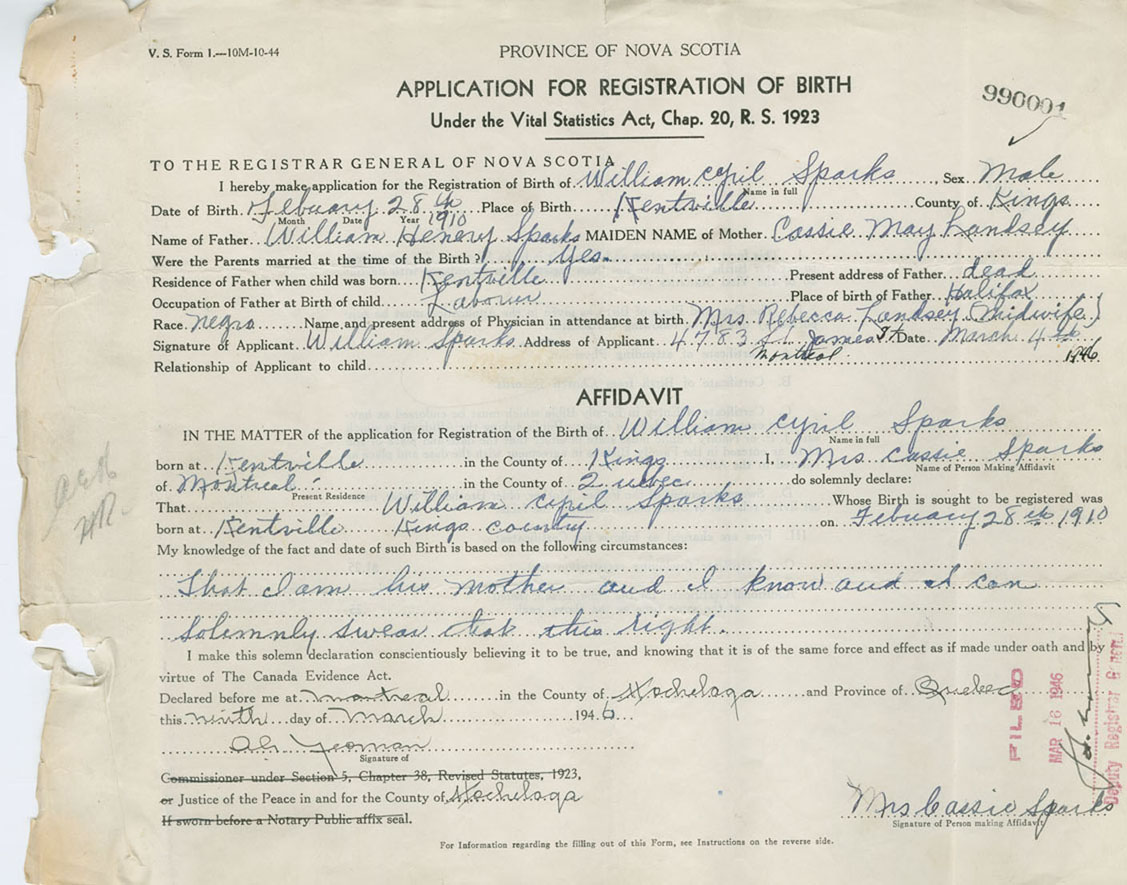 V. S. Form 1.—10M-10-44
PROVINCE OF NOVA SCOTIA
APPLICATION FOR REGISTRATION OF BIRTH
990001
Under the Vital Statistics Act, Chap. 20, R. S. 1923
TO THE REGISTRAR GENERAL OF NOVA SCOTIA
I hereby make application for the Registration of Birth of William Cyril Sparks, Sex Male
Name in full
Date of Birth Febuary 28th 1910 Place of Birth Kentville County of Kings
Month Date Year
Name of Father William Henery Sparks MAIDEN NAME of Mother Cassie May Landsey
Were the Parents married at the time of the Birth? Yes.
Residence of Father when child was born Kentville Present address of Father dead
Occupation of Father at Birth of child Laborer Place of birth of Father Halifax
Race negro Name and present address of Physician in attendance at birth Mrs. Rebecca Landsey (Midwife)
Signature of Applicant William Sparks Address of Applicant 4783 St. James St Date March 4th
Montreal 1946
Relationship of Applicant to child
AFFIDAVIT
IN THE MATTER of the application for Registration of the Birth of William Cyril Sparks
Name in full
born at Kentville in the County of Kings I, Mrs Cassie Sparks
Name of Person Making Affidavit
of Montreal in the County of Quebec do solemnly declare:
Present Residence
That William Cyril Sparks Whose Birth is sought to be registered was
born at Kentville Kings country on Febuary 28th 1910
My knowledge of the fact and date of such Birth is based on the following circumstances:
That I am his mother and I know and I can
Solemnly swear that this right.
I make this solemn declaration conscientiously believing it to be true, and knowing that it is of the same force and effect as if made under oath and by
virtue of The Canada Evidence Act.
Declared before me at Montreal in the County of Hochelaga and Province of Quebec
this ninth day of March 1946
Yeoman
Signature of
Commissioner under Section 5, Chapter 38, Revised Statutes, 1923,
or Justice of the Peace in and for the County of Hochelaga
If sworn before a Notary Public affix seal.
Mrs Cassie Sparks
Signature of Person making Affidavit
For Information regarding the filling out of this Form, see Instructions on the reverse side.
FILED
MAR 16 1946
Deputy Registrar General